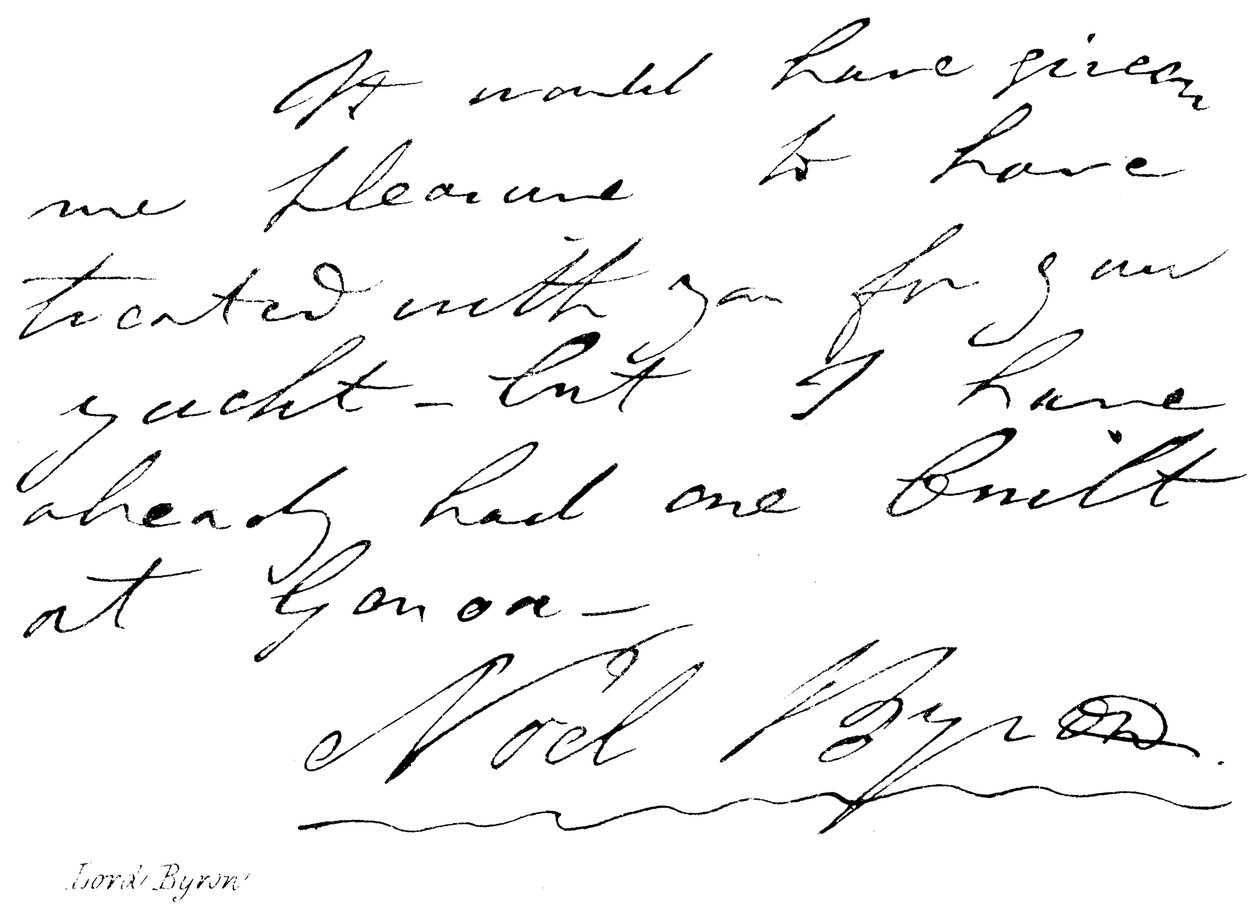 It would have given
me pleasure to have
treated with you for your
yacht – but I have
already had one built
at Genoa –
Noël Byron.
Lord Byron